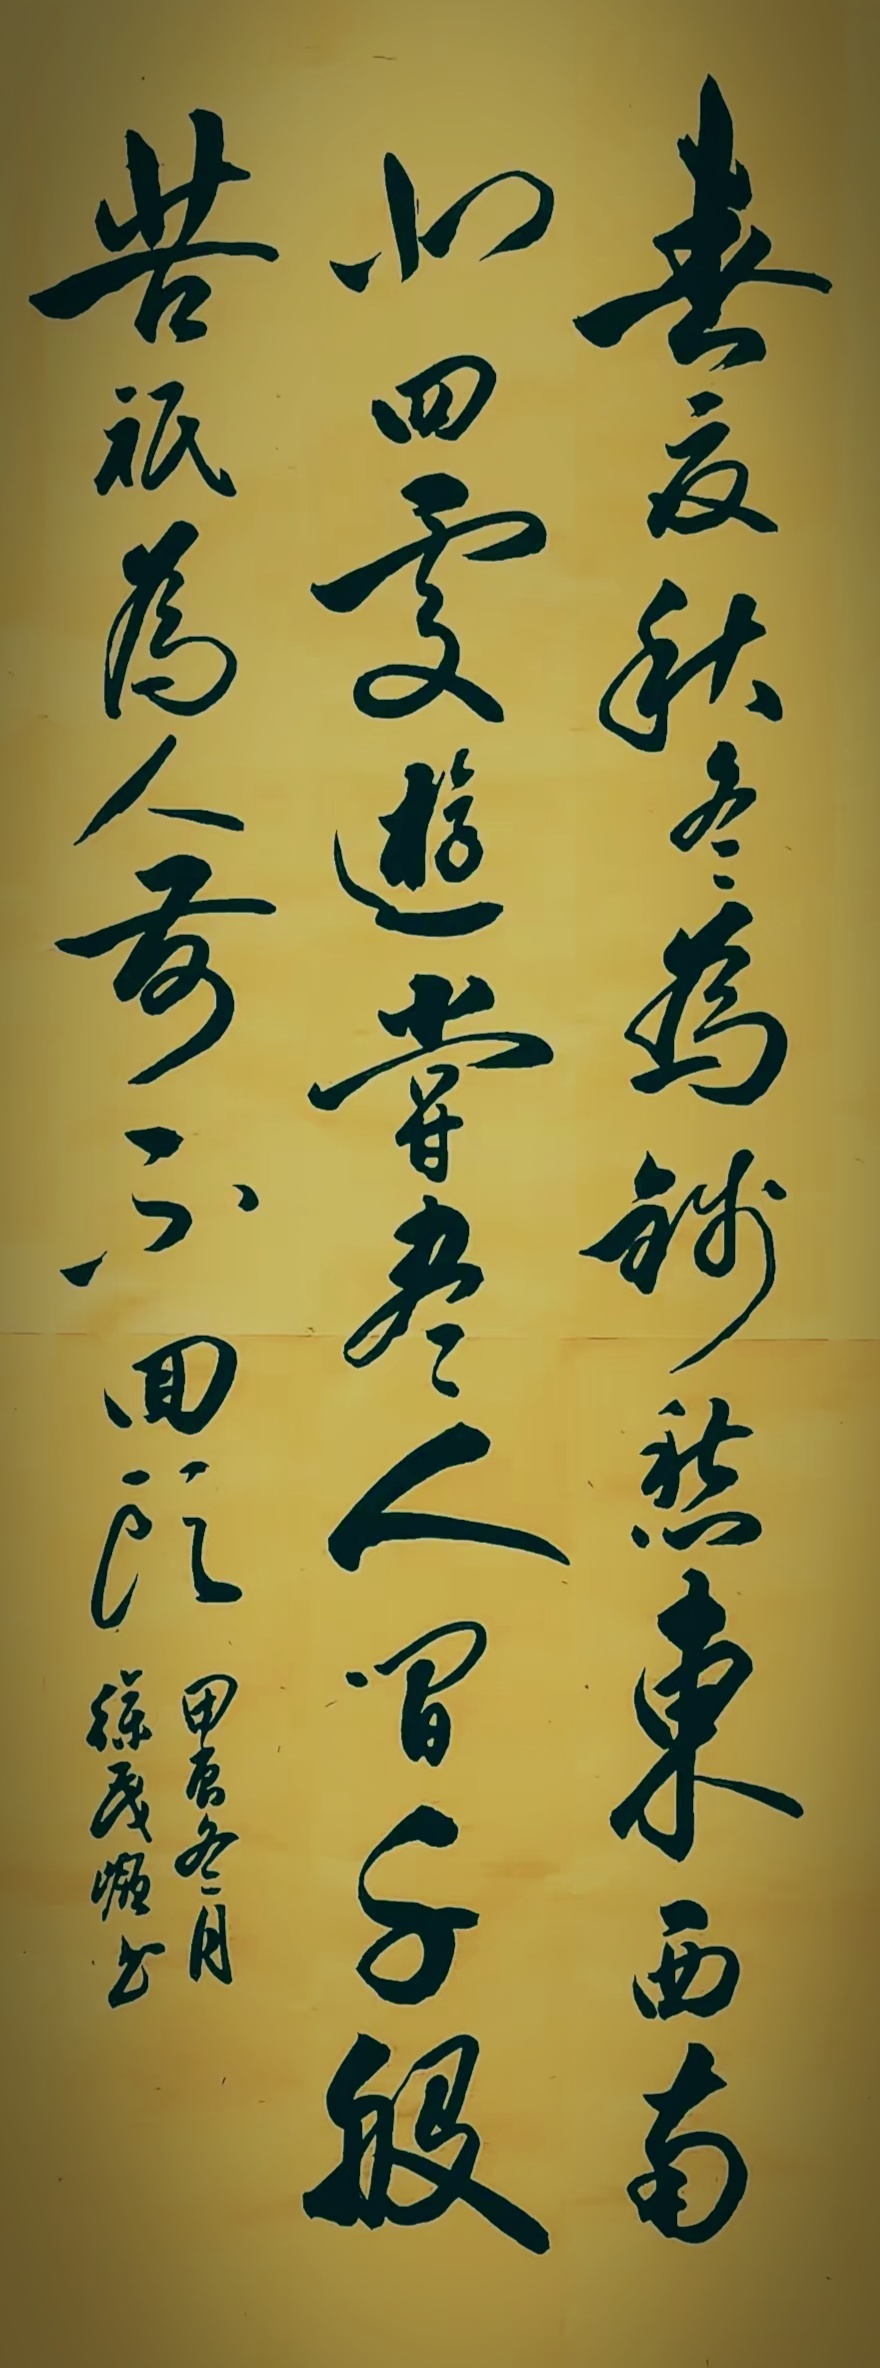 春夏秋冬為錢愁東西南
北四處遊嘗尽人間千般
苦祇為人前不回頭
甲辰冬月
徐茂书